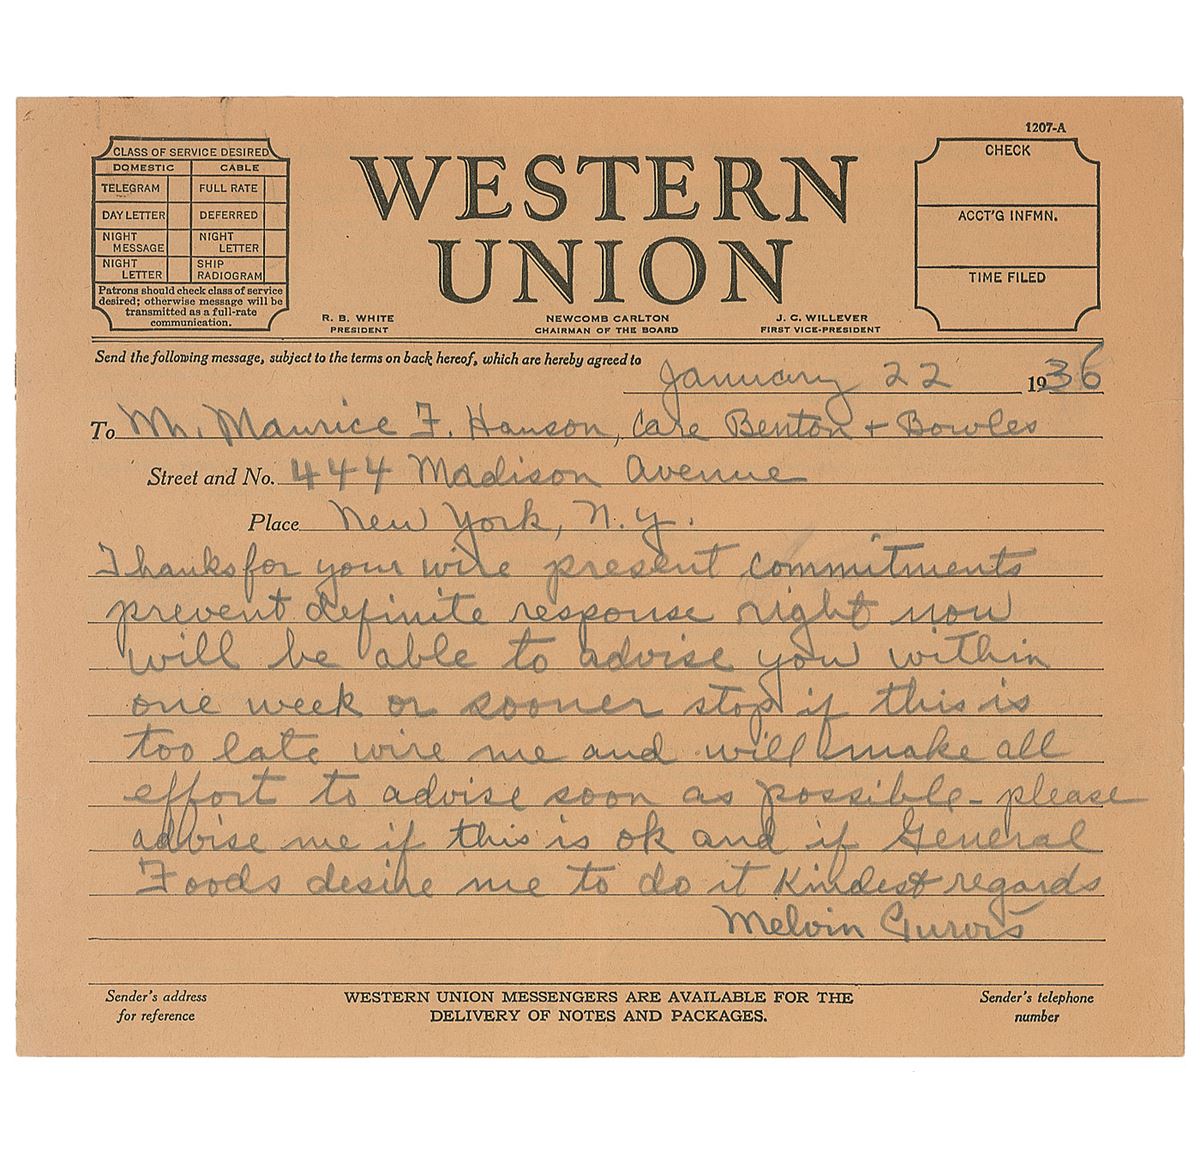 1207-A
CLASS OF SERVICE DESIRED
DOMESTIC CABLE
TELEGRAM FULL RATE
DAY LETTER DEFERRED
NIGHT MESSAGE NIGHT LETTER
NIGHT LETTER SHIP RADIOGRAM
Patrons should check class of service
desired; otherwise message will be
transmitted as a full-rate
communication.
WESTERN
UNION
R. B. WHITE
PRESIDENT
NEWCOMB CARLTON
CHAIRMAN OF THE BOARD
J. C. WILLEVER
FIRST VICE-PRESIDENT
CHECK
ACCT'G INFMN.
TIME FILED
Send the following message, subject to the terms on back hereof, which are hereby agreed to
January 22 1936
To Mr. Maurice F. Hanson, Care Benton + Bowles
Street and No. 444 Madison Avenue
Place New York, N.Y.
Thanks for your wire present commitments
prevent definite response right now
will be able to advise you within
one week or sooner stop if this is
too late wire me and will make all
effort to advise soon as possible - please
advise me if this is ok and if General
Foods desire me to do it Kindest regards
Melvin Purvis
Sender's address
for reference
WESTERN UNION MESSENGERS ARE AVAILABLE FOR THE
DELIVERY OF NOTES AND PACKAGES.
Sender's telephone
number